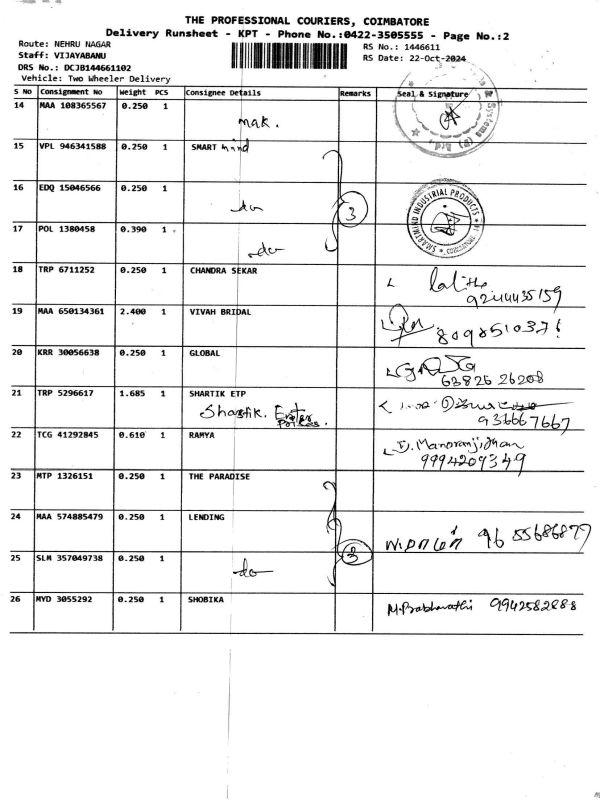 THE PROFESSIONAL COURIERS, COIMBATORE
Delivery Runsheet - KPT - Phone No.:0422-3505555 - Page No.:2
Route: NEHRU NAGAR
RS No.: 1446611
Staff: VIJAYABANU
RS Date: 22-Oct-2024
DRS No.: DCJB144661102
Vehicle: Two Wheeler Delivery
S NO Consignment No Weight PCS Consignee Details Remarks Seal & Signature
14 MAA 108365567 0.250 1 mak.
15 VPL 946341588 0.250 1 SMART mind
16 EDQ 15046566 0.250 1 do 3
SMARTMIND INDUSTRIAL PRODUCTS
17 POL 1380458 0.390 1 do
18 TRP 6711252 0.250 1 CHANDRA SEKAR
9244435159
19 MAA 650134361 2.400 1 VIVAH BRIDAL
20 KRR 30056638 0.250 1 GLOBAL
63826 26208
21 TRP 5296617 1.685 1 SHARTIK ETP
Shartik.
936667667
22 TCG 41292845 0.610 1 RAMYA
9994209349
23 MTP 1326151 0.250 1 THE PARADISE
24 MAA 574885479 0.250 1 LENDING 3
9655686877
25 SLM 357049738 0.250 1 do
26 MYD 3055292 0.250 1 SHOBIKA M.Prabhavathi